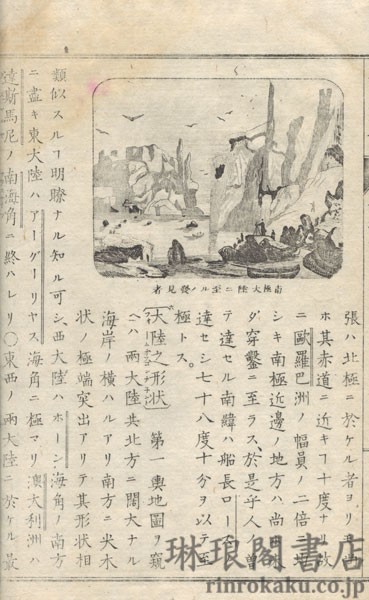 南極大陸ニ至ルノ發見者
張ハ北極ニ於ケル者ヨリモ
ホ其赤道ニ近キヿ十度ナリ故
ニ歐羅巴洲幅員ノ二倍ニ
シキ南極近邊ノ地方ハ尚
ダ穿鑿ニ至ラス、於是乎人曽
テ達セル南緯ハ船長ロース
達セシ七十八度十分ヲ以テ至
極トス。
大陸之形状 第一輿地圖ヲ窺
ヘハ兩大陸共北方ニ闊大ナル
海岸ノ橫ハルアリ南方ニ尖木
状ノ極端突出アリテ其形状相
類似スルヿ明瞭ナル知ル可シ、西大陸ハホーン海角ノ南方
ニ盡キ東大陸ハアーグーリヤス海角ニ極マリ澳大利洲ハ
達斯馬尼ノ南海角ニ終ハレリ〇東西ノ兩大陸ニ於ケル最
琳琅閣書店
rinrokaku.co.jp